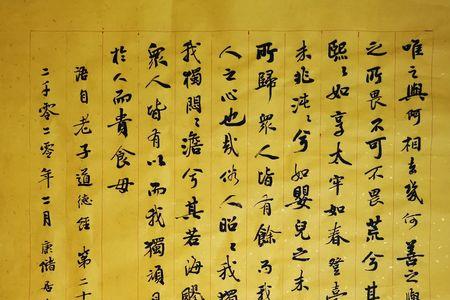 唯之與阿相去幾何善之與
之所畏不可不畏荒兮其
熙〻如享太牢如春登臺
未兆沌〻兮如嬰兒之未
所歸眾人皆有餘而我
人之心也哉俗人昭〻我獨
我獨悶〻澹兮其若海飂
眾人皆有以而我獨頑且
於人而貴食母
語自老子道德經第二十
二千零二零年二月